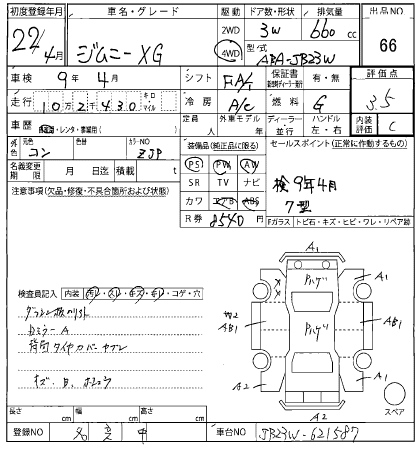 初度登録年月 車名・グレード 駆動 ドア数・形状 排気量 出品NO
22/4月 ジムニー XG 2WD 4WD 3W 660 cc 66
型式 ABA-JB23W
車検 9年 4月 シフト FA/1 保証書 有・無 評価点
走行 10万2千430 キロ マイル 冷房 A/C 燃料 G 3.5
車歴 ・レンタ・ 定員 人 外車モデル 年 ディーラー 並行 ハンドル 左・右 内装評価 C
外色 元色 コン 色替 カラーNO ZJP
装備品(純正品に限る) セールスポイント(正常に作動するもの)
名義変更期限 月 日迄 積載 t
PS PW AW
検 9年4月
SR TV ナビ
7型
注意事項(欠品・修復・不具合箇所および状態)
カワ エアB ABS
R券 8540円
Fガラス トビ石・キズ・ヒビ・ワレ・リペア跡
検査員記入 内装 汚レ・スレ・キズ・キレ・コゲ・穴
DミラーA
背面タイヤカバーヤブレ
A1
A1
A1
AB1
AB1
A2
A1
A2
ハゲ
ハゲ
スペア
長さ cm 幅 cm 高さ cm
登録NO 車台NO JB23W-621587